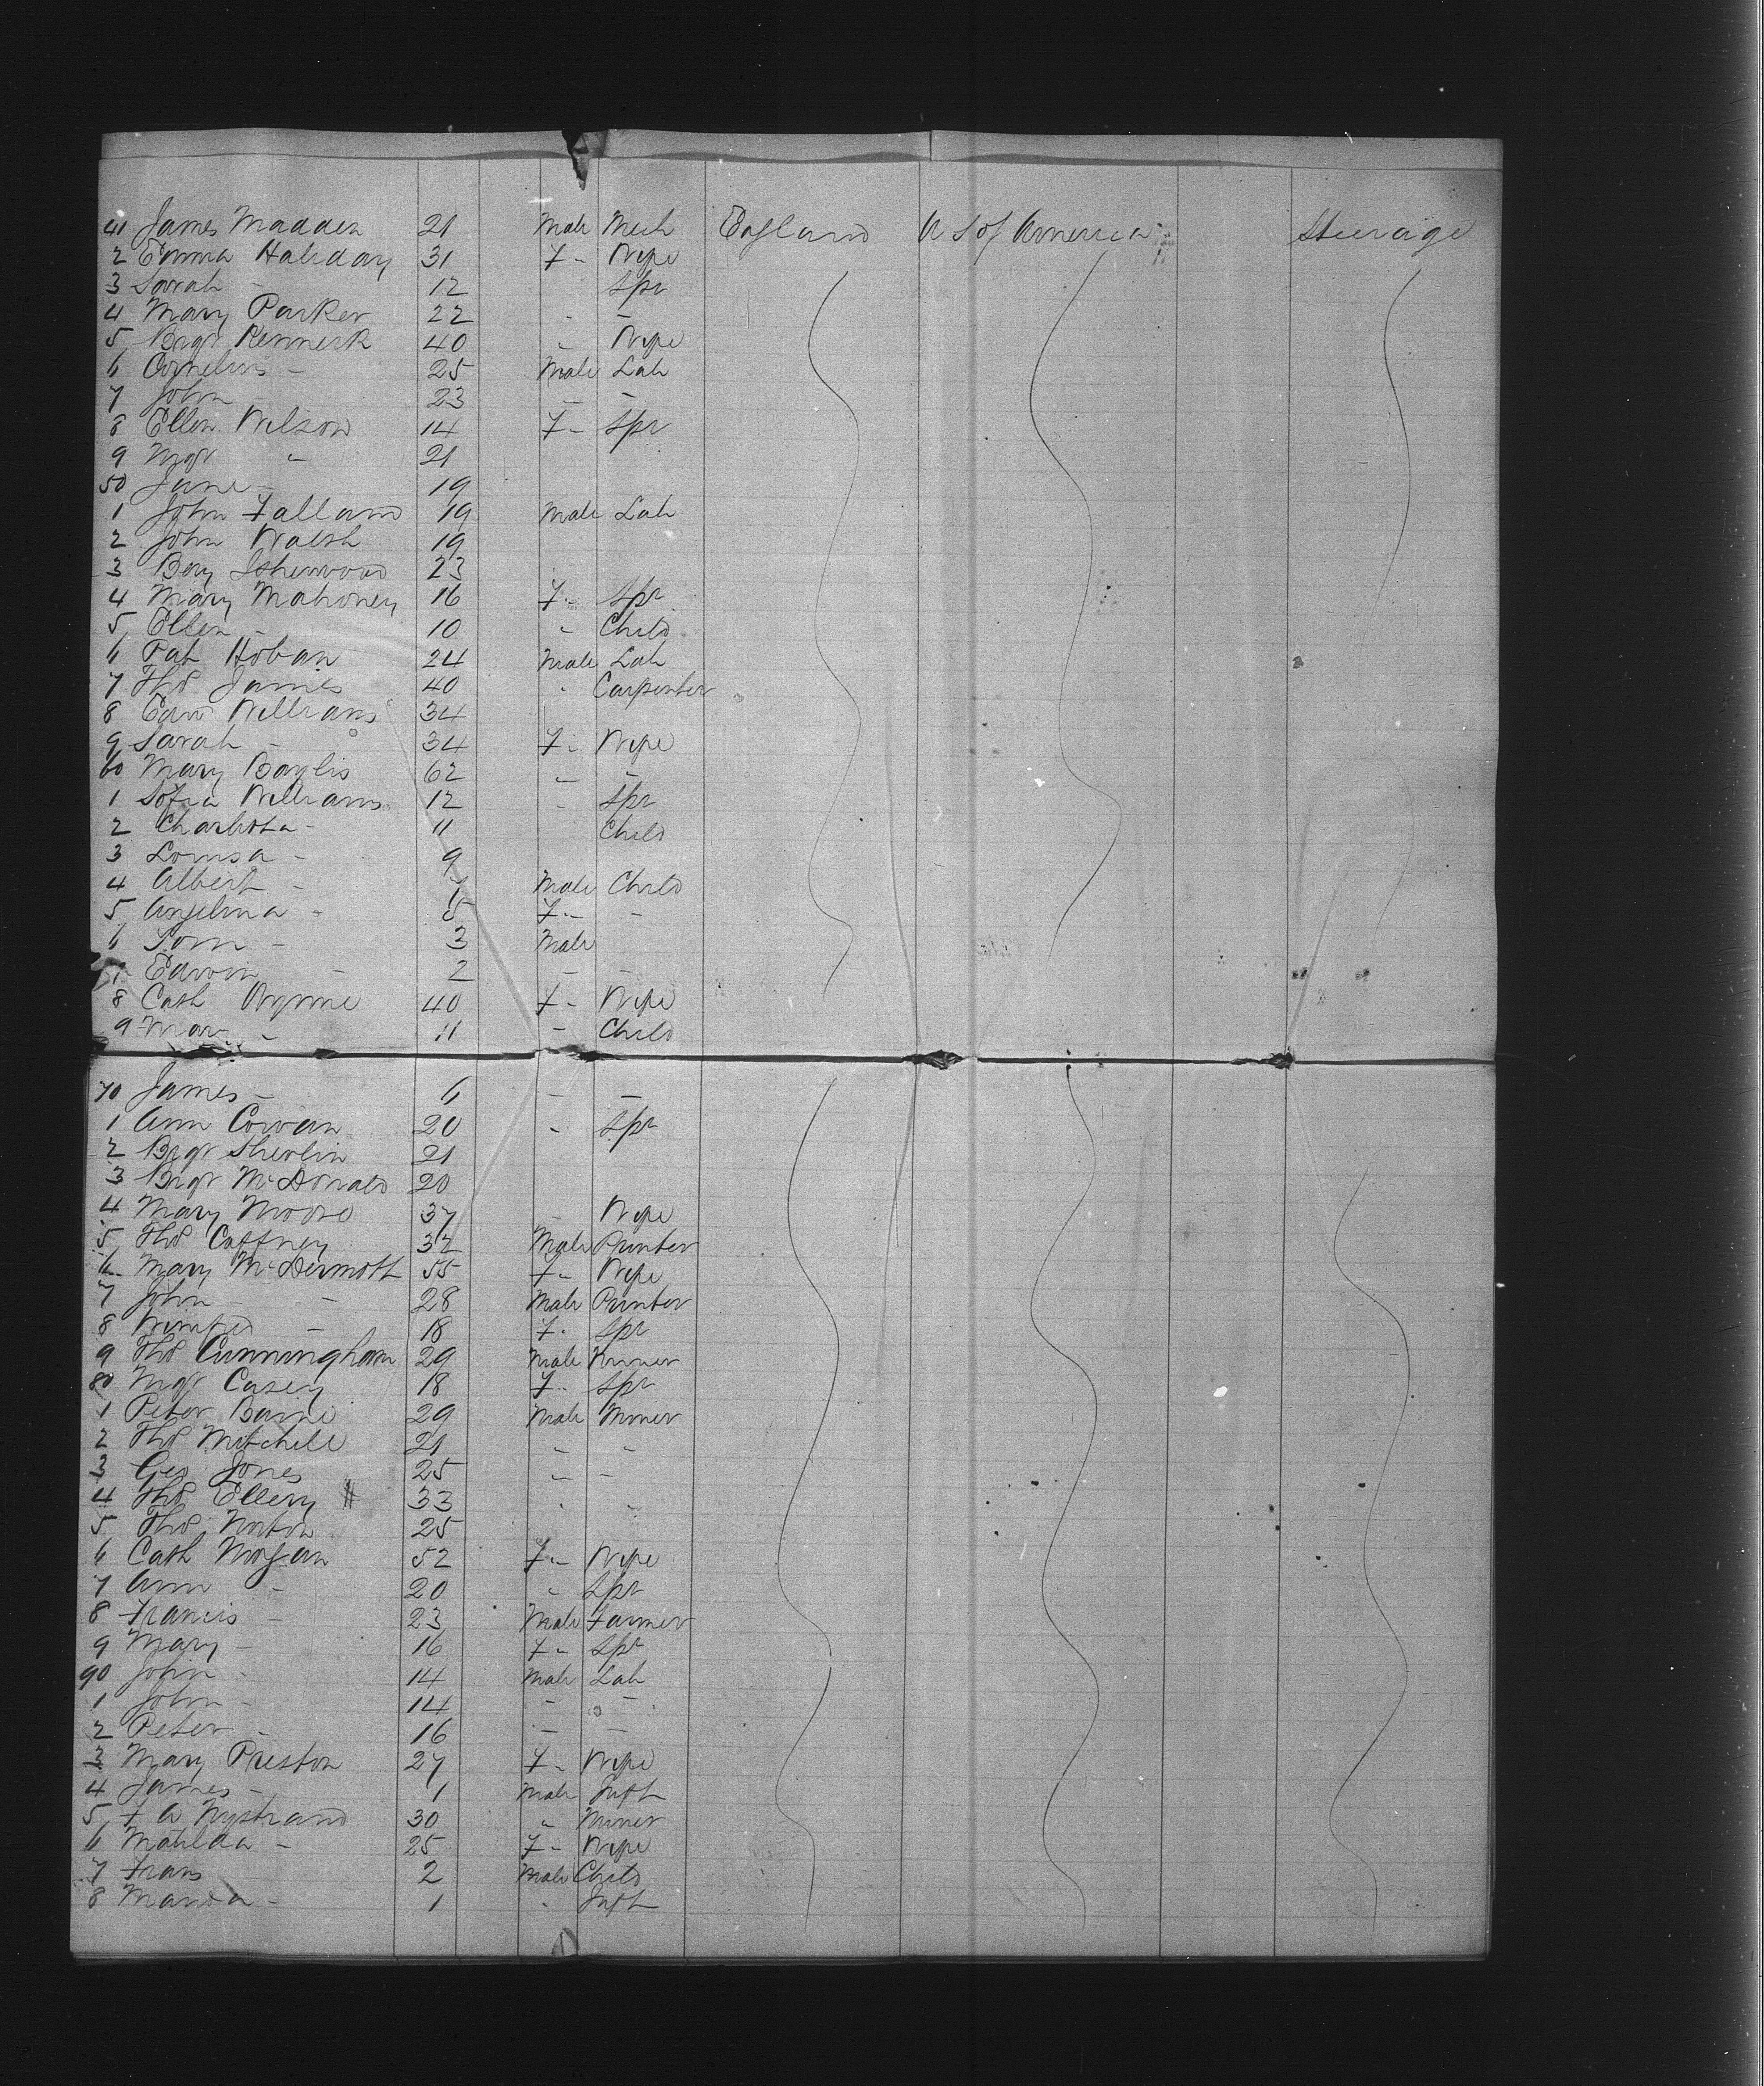 41 James Madden 21 Male Mech England U S of America Steerage
2 Emma Haliday 31 F " Wife
3 Sarah - 12 Spr
4 Mary Parker 22 " -
5 Brgt Kennerk 40 " Wife
6 Cornelius - 25 Male Lab
7 John - 23 - -
8 Ellen Wilson 14 F - Spr
9 Mgt " 21
50 Jane - 19
1 John Falland 19 Male Lab
2 John Walsh 19
3 Benj Isherwood 23
4 Mary Mahoney 16 F - Spr
5 Ellen - 10 " Child
6 Pat Hoban 24 Male Lab
7 Thos James 40 " Carpenter
8 Edwd Williams 34
9 Sarah - 34 F - Wife
60 Mary Baylis 62 - -
1 Sofia Williams 12 " Spr
2 Charlotta - 11 Child
3 Louisa - 9
4 Albert - Male Child
5 Angelina - 5 F - -
6 Tom - 3 Male
7 Edwin - 2 - -
8 Cath Wynne 40 F - Wife
9 Mary - 11 - Child
70 James - 6 - -
1 Ann Cowan 20 " Spr
2 Brgt Sherlin 21
3 Brgt McDonald 20
4 Mary Moore 37 - Wife
5 Thos Caffney 32 Male Printer
6 Mary McDermott 55 F - Wife
7 John - 28 Male Printer
8 Winifred - 18 F - Spr
9 Thos Cunningham 29 Male Miner
80 Mgt Casey 18 F - Spr
1 Peter Barne 29 Male Miner
2 Thos Mitchell 21 - -
3 Geo Jones 25 - -
4 Thos Ellery # 33 " "
5 Thos Norton 25
6 Cath Morgan 52 F - Wife
7 Ann - 20 " Spr
8 Francis - 23 Male Farmer
9 Mary - 16 F - Spr
90 John - 14 Male Lab
1 John - 14 - -
2 Peter - 16 - -
3 Mary Preston 27 F - Wife
4 James - 1 Male Inft
5 F A Nystrand 30 " Miner
6 Matilda - 25 F - Wife
7 Frans 2 Male Child
8 Manda - 1 " Inft